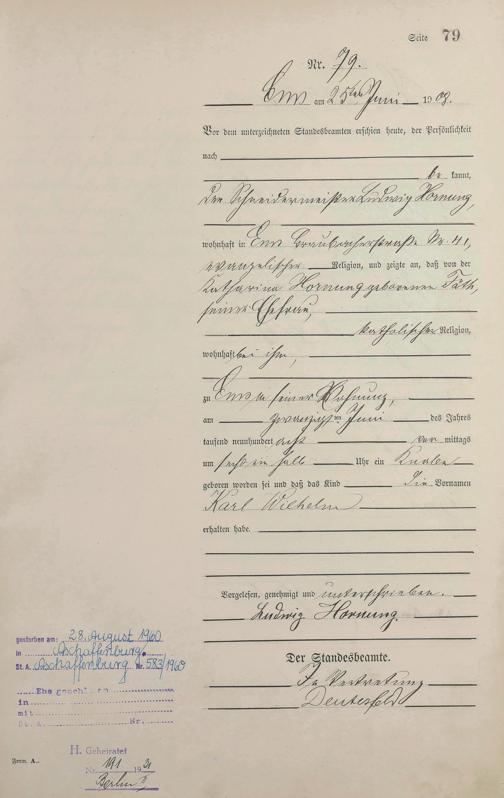 Seite 79
Nr. 79.
Ems am 25ten Juni 1908.
Vor dem unterzeichneten Standesbeamten erschien heute, der Persönlichkeit
nach
be kannt,
der Schneidermeister Ludwig Hornung,
wohnhaft in Ems Braubacherstraße Nr. 41,
evangelischer Religion, und zeigte an, daß von der
Katharina Hornung geborenen
seiner Ehefrau,
katholischer Religion,
wohnhaft bei ihm,
zu Ems in seiner Wohnung,
am Juni des Jahres
tausend neunhundert acht vor mittags
um sechs ein halb Uhr ein Knabe
geboren worden sei und daß das Kind die Vornamen
Karl Wilhelm
erhalten habe.
Vorgelesen, genehmigt und unterschrieben.
Ludwig Hornung.
Der Standesbeamte.
In Vertretung
gestorben am: 28. August 1960
in Aschaffenburg.
St. A. Aschaffenburg Nr. 583/1960
Ehe geschl
in
mit
St. A. Nr.
H. Geheiratet
Nr. 191 19
Berlin
Form. A.